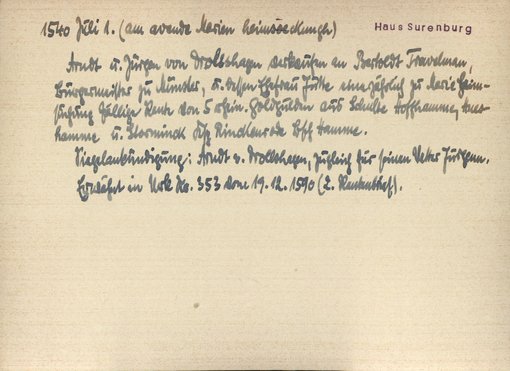 1540 Juli 1. (am avende Marien heimsoeckungh)
Haus Surenburg
Arndt u. Jürgen von Drolshagen verkaufen an Bertoldt Travelman,
Bürgermeister zu Münster, u. dessen Ehefrau Jutte eine jährlich zu Mariä Heim-
suchung fällige Rente von 5 rhein. Goldgulden aus Schulte Hoffhamme,
hamme u. Stermind Ksp Rinckerode Bsch Hemme.
Siegelankündigung: Arndt v. Drolshagen, zugleich für seinen Vetter Jürgen.
Erwähnt in Urk No. 353 vom 19.12.1590 (2. Rentenbrief).